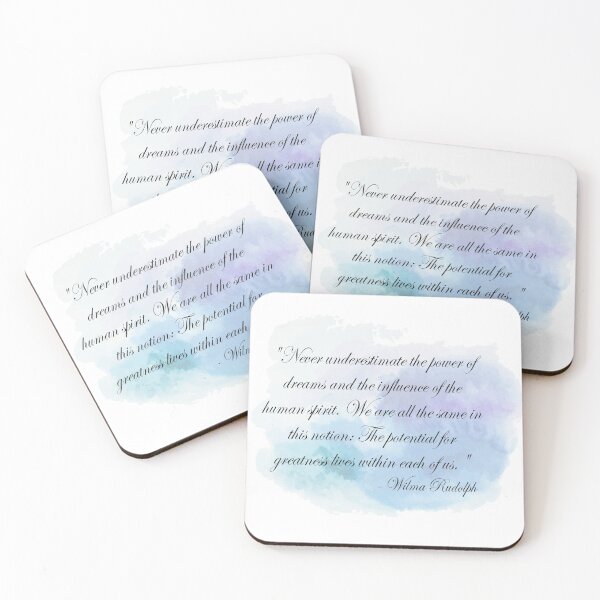 "Never underestimate the power of
dreams and the influence of the
human spirit. We are all the same i
for
of us.
Rud
"Never underestimate the power of
dreams and the influence of the
human spirit. We are all the same in
this notion: The potential for
greatness lives within each of us. "
dolph
"Never underestimate the power of
dreams and the influence of the
human spirit. We are all the same in
this notion: The potential for
greatness lives within each
- Wilm
"Never underestimate the power of
dreams and the influence of the
human spirit. We are all the same in
this notion: The potential for
greatness lives within each of us. "
- Wilma Rudolph